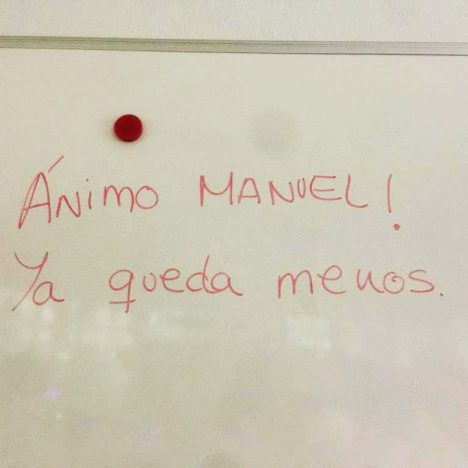 Ánimo MANUEL!
Ya queda menos.